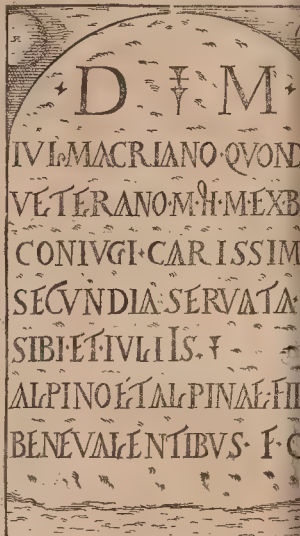 D M
IVL·MACRIANO·QVOND
VETERANO·M·H·M·EXB
CONIVGI·CARISSIM
SECVNDIA·SERVATA·
SIBI·ET·IVLIIS·
ALPINO ET ALPINAE·FII
BENEVALENTIBVS· F·C